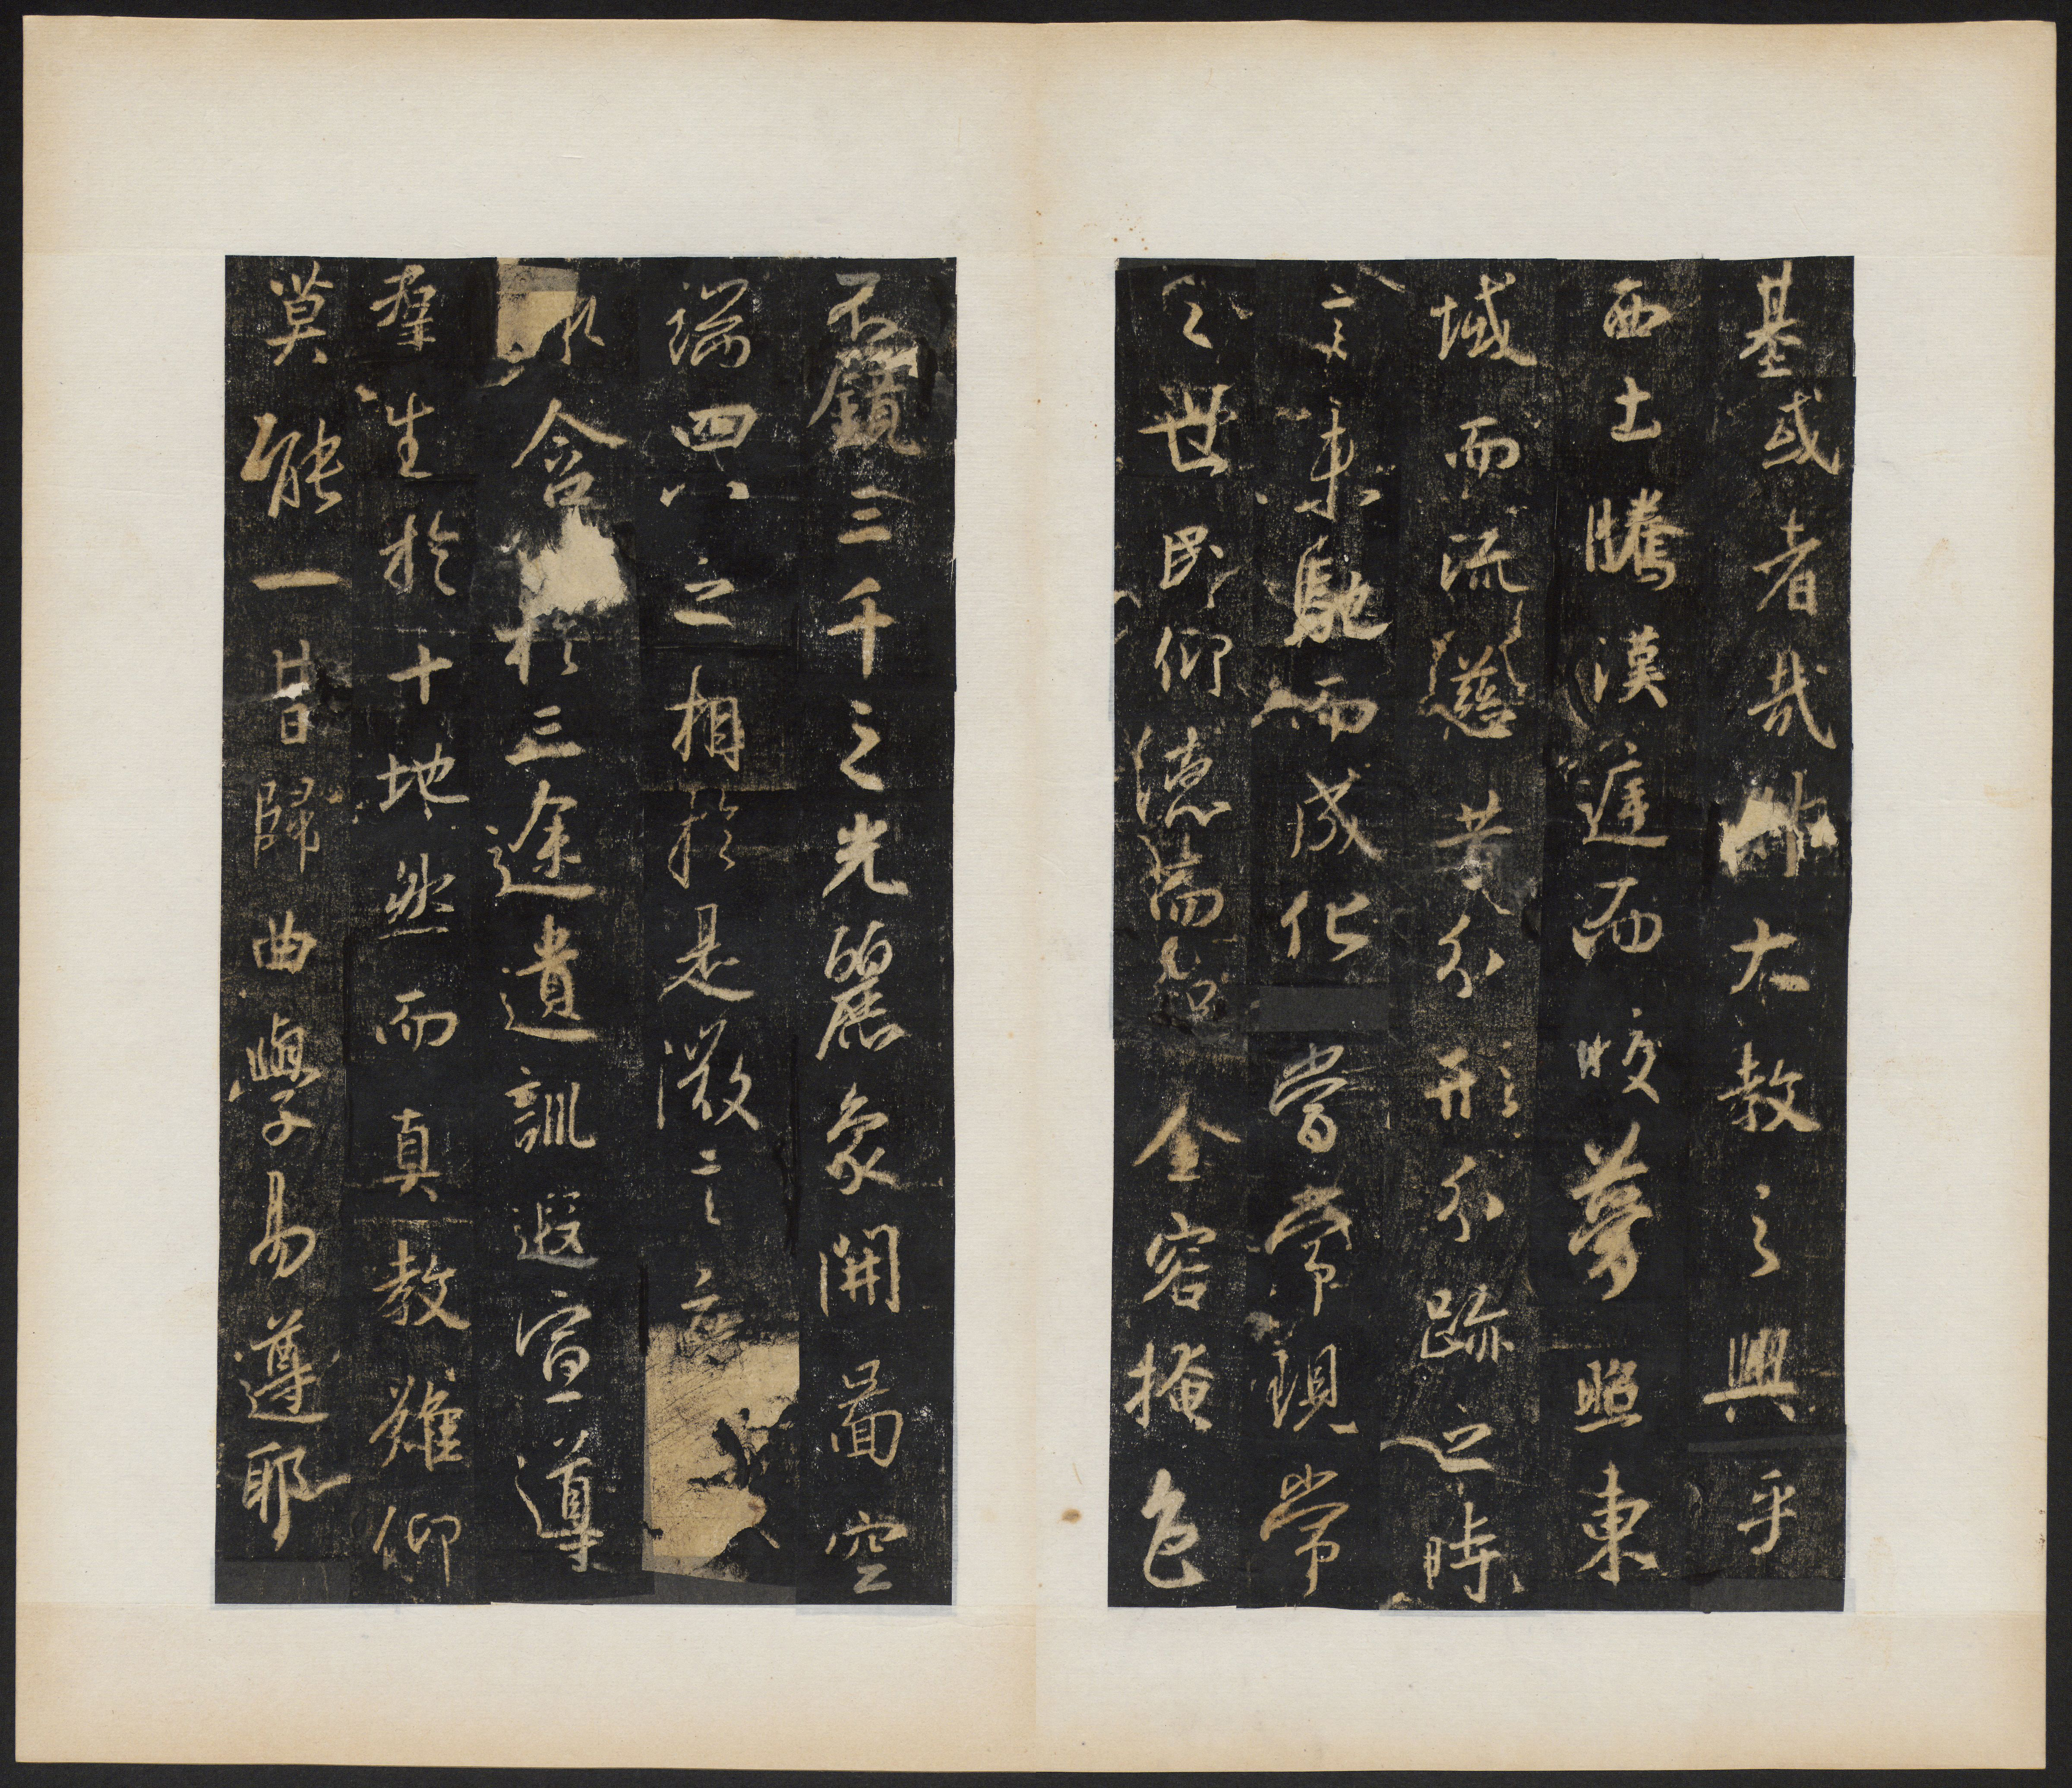 基或者哉則大教之興乎
西土騰漢庭而皎夢照東
域而流慈昔分形分跡之時
言未馳而成化當常現常
之世民仰德而知金容掩色
不鏡三千之光麗象開圖空
端四八之相於是微言
含於三途遺訓遐宣導
群生於十地然而真教難仰
莫能一旨歸曲學易遵邪